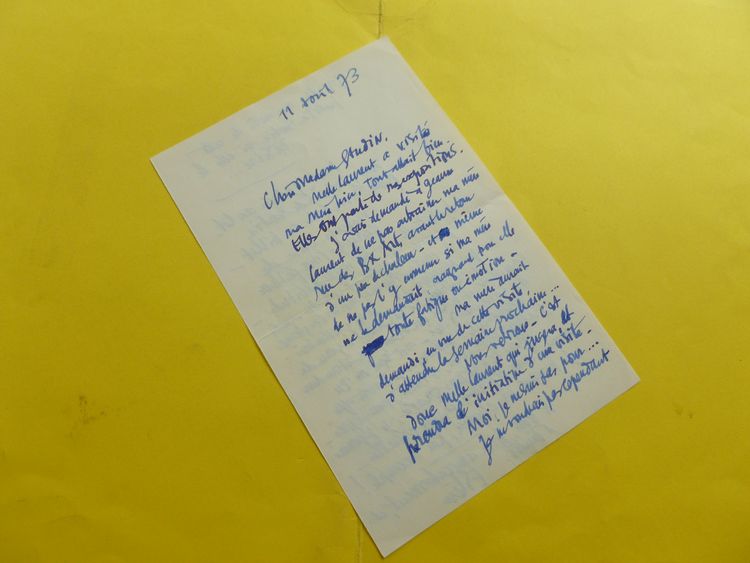 11 Avril 73
Chère Madame Gaudin,
Melle Laurent a visité
ma mère hier, tout allait bien.
Elles ont parlé de nos expositions.
J'avais demandé à
Laurent de ne pas entraîner ma mère
rue des Bx Arts, avant le retour
d'un peu de chaleur - et même
de ne pas l'y emmener si ma mère
ne le demandait, craignant pour elle
toute fatigue ou émotion -
ma mère aurait
demandé en vue de cette visite
d'attendre la semaine prochaine...
C'est
donc Melle Laurent qui jugera et
prendra l'initiative d'une visite -
Moi, je n'irai pas, pour...
Je ne voudrais pas cependant